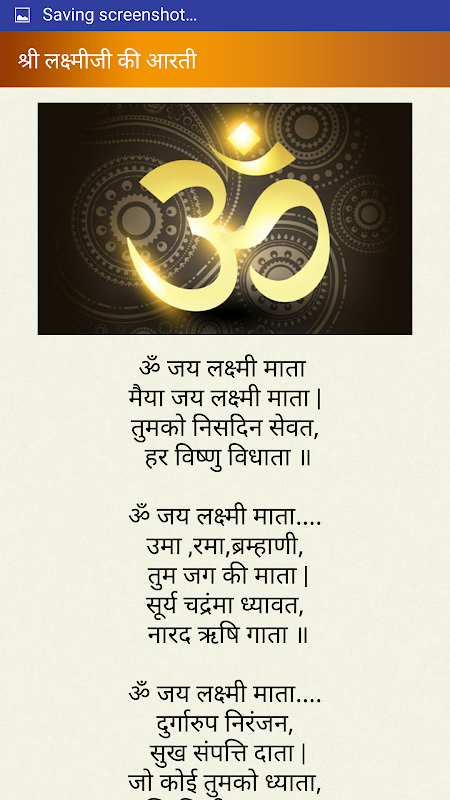 Saving screenshot...
श्री लक्ष्मीजी की आरती
ॐ
ॐ जय लक्ष्मी माता
मैया जय लक्ष्मी माता |
तुमको निसदिन सेवत,
हर विष्णु विधाता ॥
ॐ जय लक्ष्मी माता....
उमा ,रमा,ब्रम्हाणी,
तुम जग की माता |
सूर्य चद्रंमा ध्यावत,
नारद ऋषि गाता ॥
ॐ जय लक्ष्मी माता....
दुर्गारुप निरंजन,
सुख संपत्ति दाता |
जो कोई तुमको ध्याता,